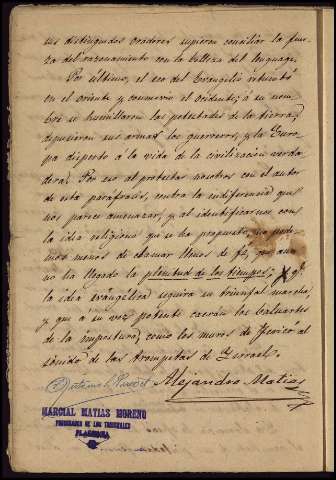 sus distinguidos oradores supieron conciliar la fuer-
za del razonamiento con la belleza del lenguage.
Por último, el eco del Evangelio retumbó
en el oriente y conmovió el occidente, á su nom-
bre se humillaron las potestades de la tierra,
depusieron sus armas los guerreros, y la Euro-
pa despertó á la vida de la civilización verda-
dera. Por eso al protestar nosotros con el autor
de esta paráfrasis, contra la indiferencia que
nos parece amenazar, y al identificarnos con
la idea religiosa que se ha propuesto, no pode-
mos menos de clamar llenos de fé, que aun
no ha llegado la plenitud de los tiempos; y q.e
la idea evangélica seguirá su triunfal marcha
y que a su voz potente caerán los baluartes
de la impostura, como los muros de Jericó al
sonido de las trompetas de Israel.
Alejandro Matías
MARCIAL MATIAS MORENO
PROCURADOR DE LOS TRIBUNALES
PLASENCIA